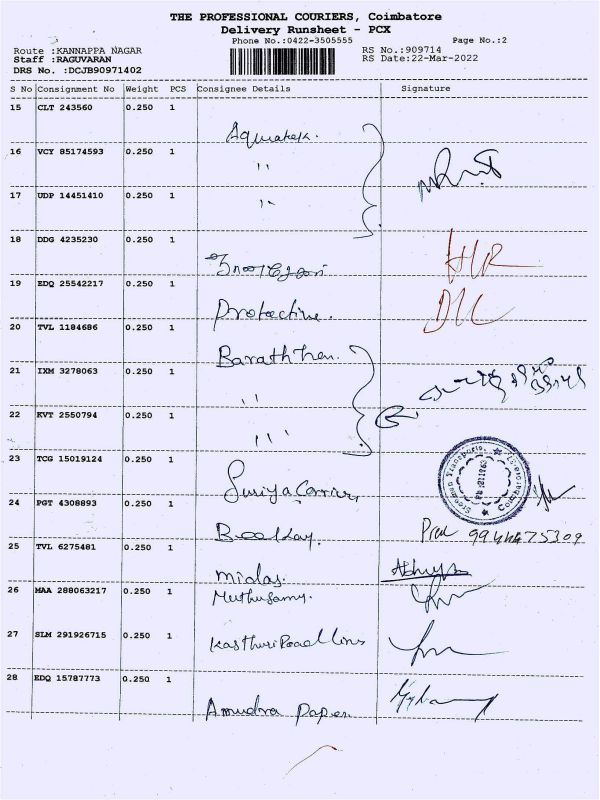 THE PROFESSIONAL COURIERS, Coimbatore
Delivery Runsheet - PCX
Phone No.:0422-3505555 Page No.:2
Route :KANNAPPA NAGAR RS No.:909714
Staff :RAGUVARAN RS Date:22-Mar-2022
DRS No. :DCJB90971402
S No Consignment No Weight PCS Consignee Details Signature
15 CLT 243560 0.250 1
16 VCY 85174593 0.250 1 "
17 UDP 14451410 0.250 1 "
18 DDG 4235230 0.250 1
19 EDQ 25542217 0.250 1 Protective.
20 TVL 1184686 0.250 1
21 IXM 3278063 0.250 1 "
22 KVT 2550794 0.250 1
23 TCG 15019124 0.250 1 Suriya Carrier
24 PGT 4308893 0.250 1 9944475309
25 TVL 6275481 0.250 1 Midas.
26 MAA 288063217 0.250 1 Muthusamy.
27 SLM 291926715 0.250 1 Kasthuri Road lines
28 EDQ 15787773 0.250 1 Paper